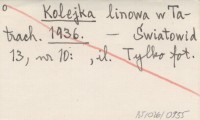 Kolejka linowa w Ta-
trach. 1936. — Światowid
13, nr 10: , il. Tylko fot.